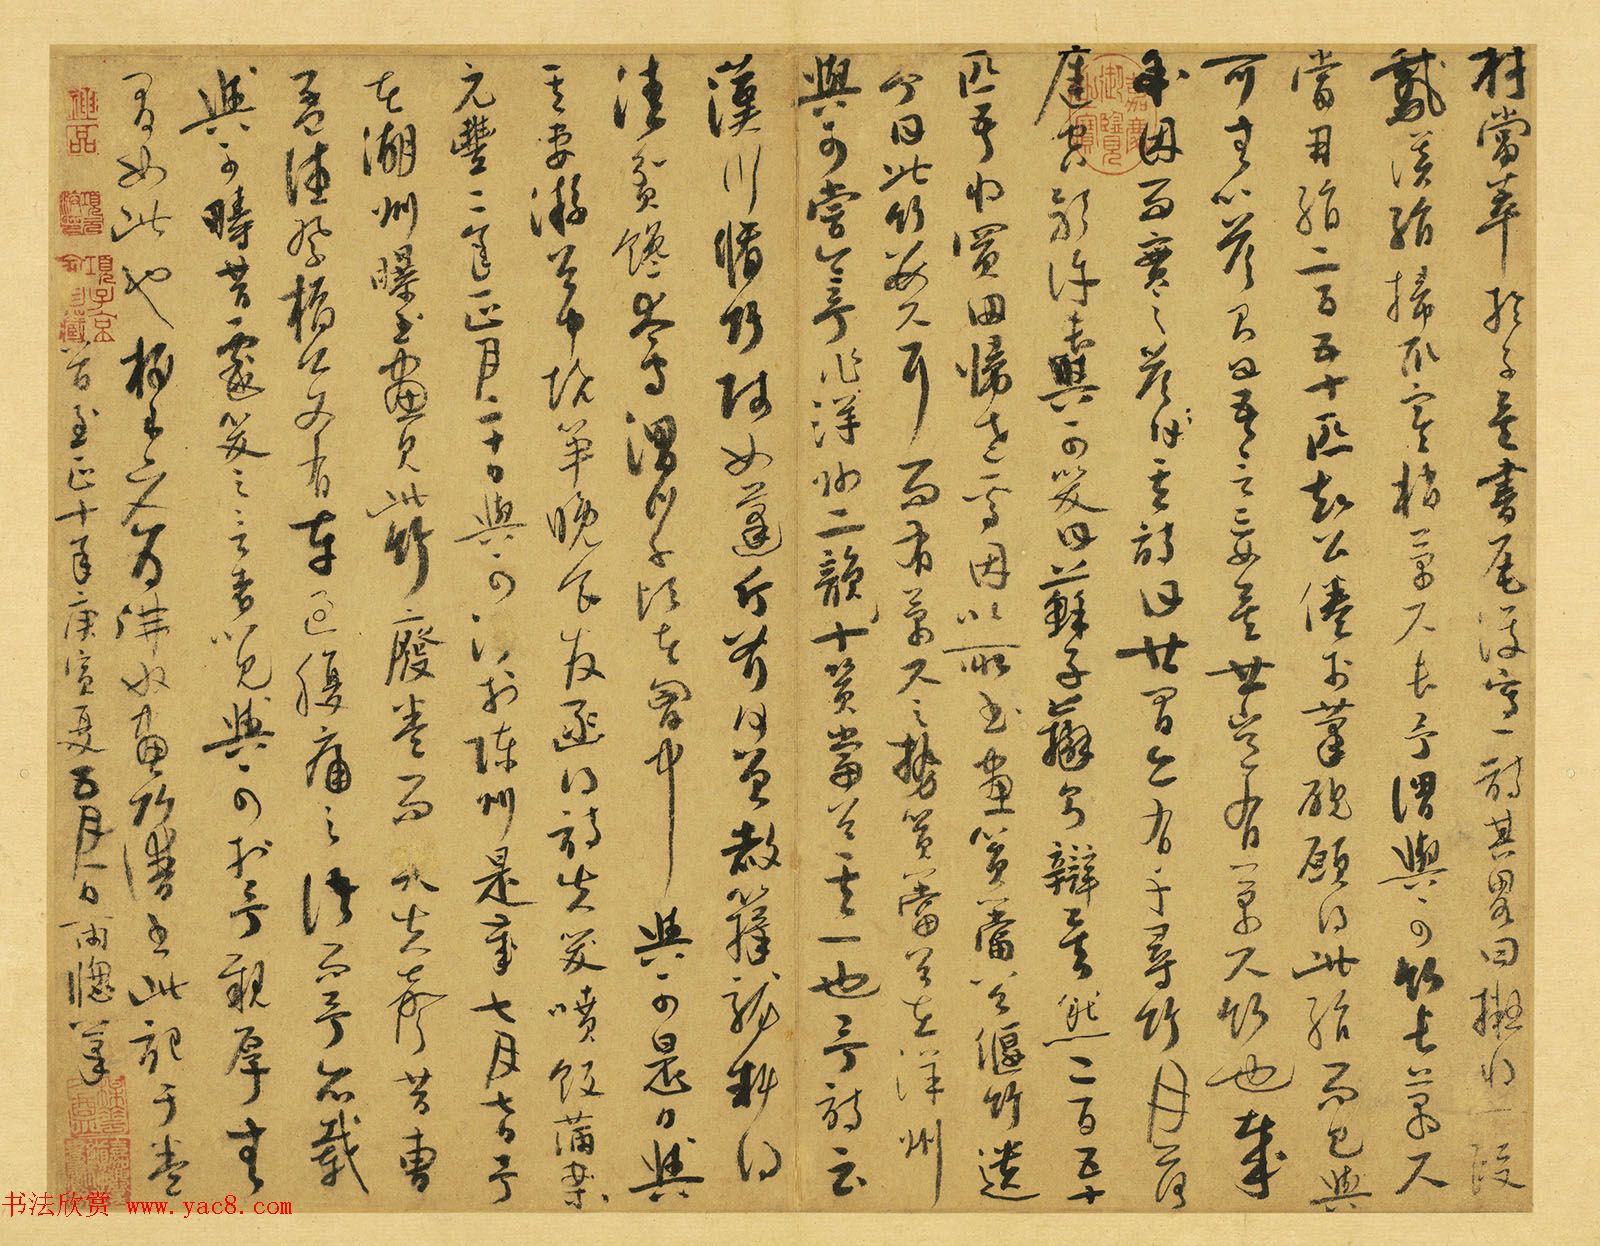 材當萃於子矣書尾復寫一詩其畧曰擬將一段
鵝溪絹掃取寒梢萬尺長予謂與可竹長萬尺
當用絹二百五十匹知公倦於筆硯願得此絹而已與
可無以答則曰吾言妄矣世豈有萬尺竹也哉
余因而實之答其詩曰世間亦有千尋竹月落
庭空影許長與可笑曰蘇子辯則辯矣然二百五十
匹吾將買田歸老焉因以所畫篔簹谷偃竹遺
予曰此竹數尺耳而有萬尺之勢篔簹谷在洋州
與可嘗令予作洋州二韻十篔簹谷其一也予詩云
漢川脩竹賤如蓬斤斧何曾赦籜龍料得
清貧饞太守渭川千畝在胸中 與可是日與
其妻游谷中燒筍晚食發函得詩失笑噴飯滿案
元豐二年正月二十日與可沒於陳州是歲七月七日予
在湖州曝書畫見此竹廢卷而哭失聲昔曹
孟德祭橋公文有車過腹痛之語而予亦載
與可疇昔戲笑之言者以見與可於予親厚無
間如此也 梅道人為佛奴畫竹譜書此記于卷
首至正十年庚寅夏五月一日雨窗筆
嘉慶御覽之寶
項子京
書法欣赏 www.yac8.com